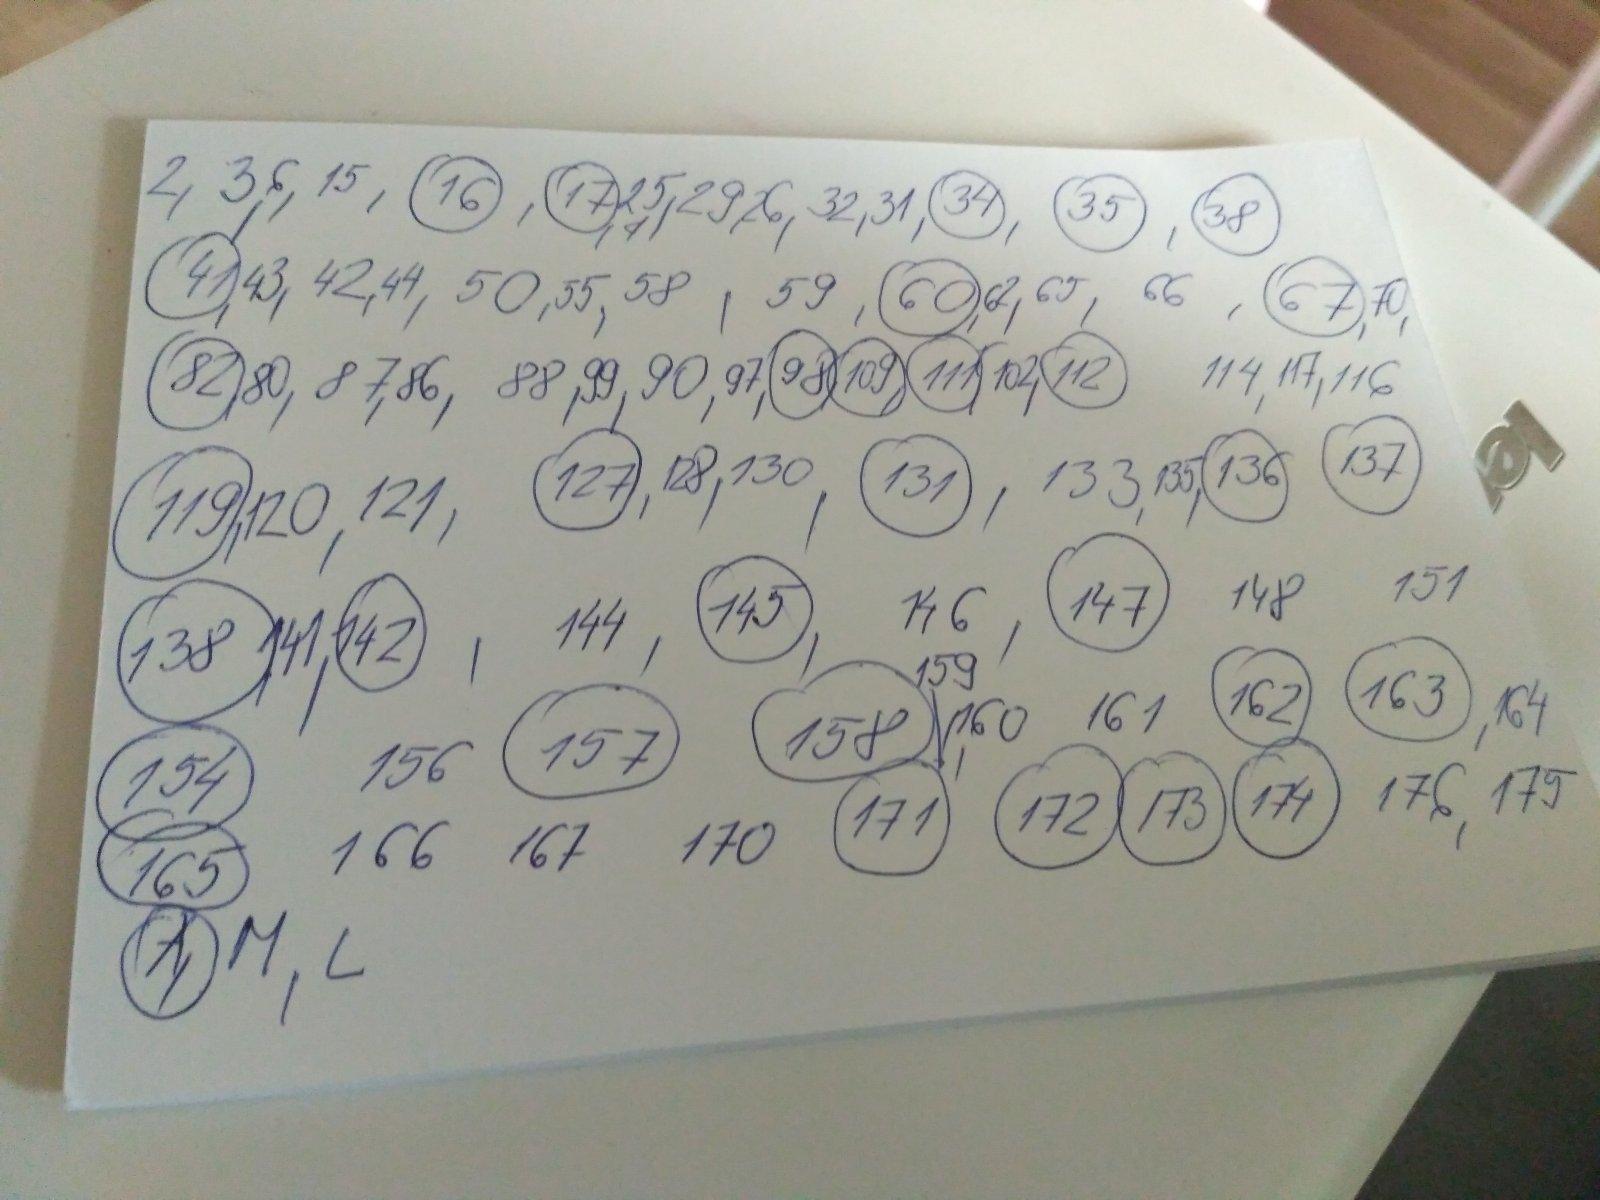 2, 3, 6, 15, 16, 17, 25, 29, 26, 32, 31, 34, 35, 38
41, 43, 42, 44, 50, 55, 58, 59, 60, 62, 65, 66, 67, 70,
82, 80, 87, 86, 88, 99, 90, 97, 98, 109, 111, 102, 112 114, 117, 116
119, 120, 121, 127, 128, 130, 131, 133, 135, 136 137
138, 141, 142, 144, 145, 146, 147 148 151
154 156 157 158, 159, 160 161 162 163, 164
165 166 167 170 171 172 173 174 176, 175
M, L